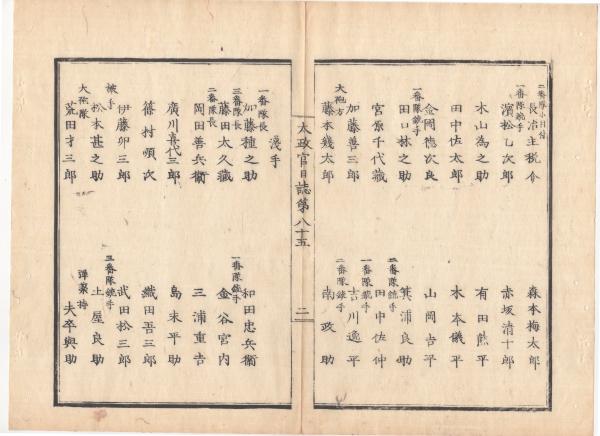 二番隊小目付
長冶主税介
森本梅太郎
一番隊銃手
濱松乙次郎
赤坂清十郎
木山為之助
有田熊平
田中佐太郎
木本儀平
金岡徳次良
山岡吉平
一番隊銃手
田口林之助
二番隊銃手
箕浦良助
宮原千代蔵
一番隊銃手
田中佐仲
加藤善三郎
二番隊銃手
吉川逸平
大砲方
藤本幾太郎
南政助
太政官日誌第八十五
二
浅手
一番隊長
加藤種之助
一番隊銃手
和田忠兵衛
三番隊長
藤田太久蔵
金谷宮内
二番隊長
岡田善兵衛
三浦重吉
廣川喜代三郎
島末平助
篠村順次
織田吾三郎
伊藤卯三郎
武田松三郎
被手
松本甚之助
三番隊銃手
土屋良助
大砲隊
荒田才三郎
弾薬持
夫卒與助